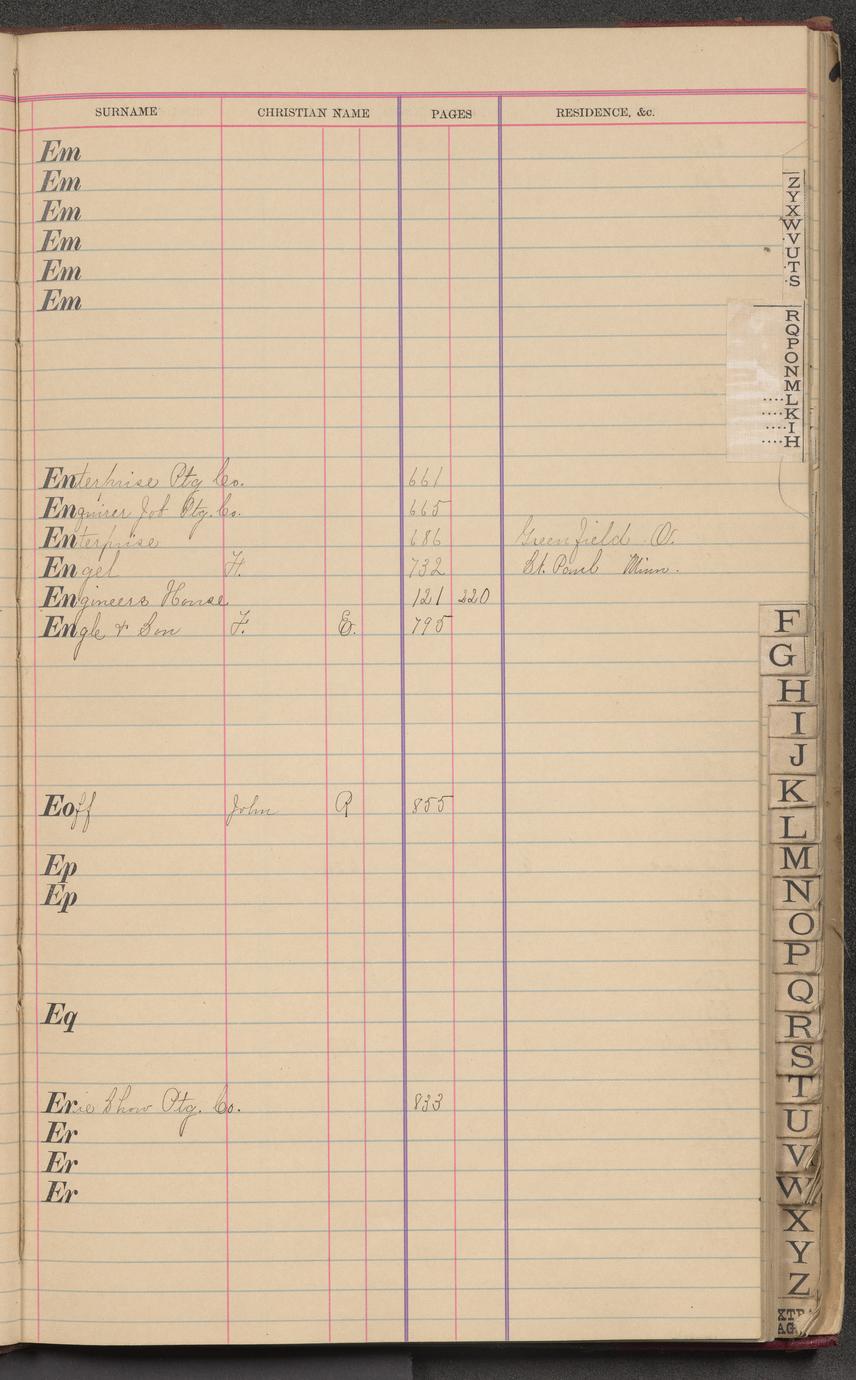 SURNAME CHRISTIAN NAME PAGES RESIDENCE, &c.
Em
Em
Em
Em
Em
Em
Enterprise Ptg Co. 661
Enquirer Job Ptg. Co. 665
Enterprise 686 Greenfield O.
Engel F. 732 St. Paul Minn.
Engineers House 121 220
Engle & Son F. E. 795
Eoff John R 855
Ep
Ep
Eq
Erie Show Ptg. Co. 833
Er
Er
Er
Z
Y
X
W
V
U
T
S
R
Q
P
O
N
M
L
K
I
H
F
G
H
I
J
K
L
M
N
O
P
Q
R
S
T
U
V
W
X
Y
Z